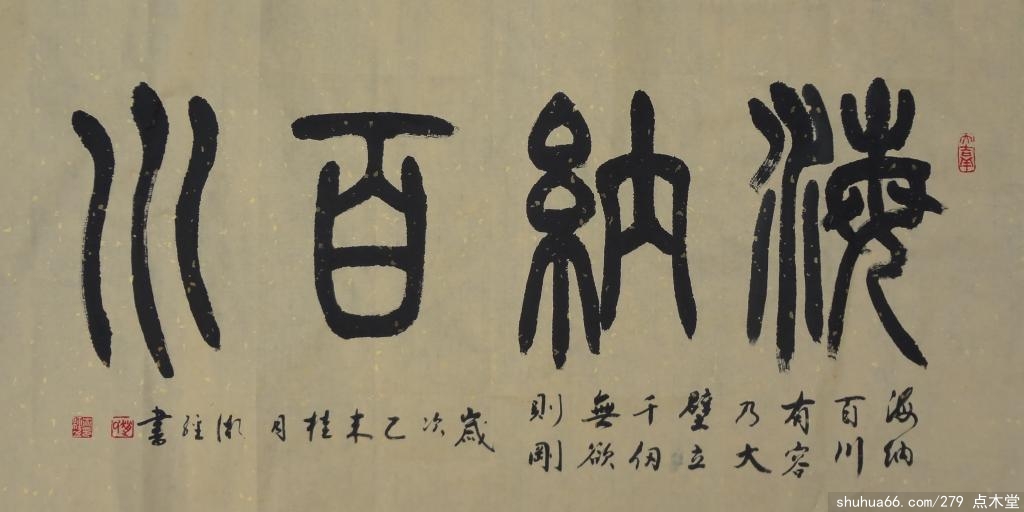 海納百川
海納
百川
有容
乃大
壁立
千仞
無欲
則剛
歲次乙未桂月
書
shuhua66.com/279 点木堂